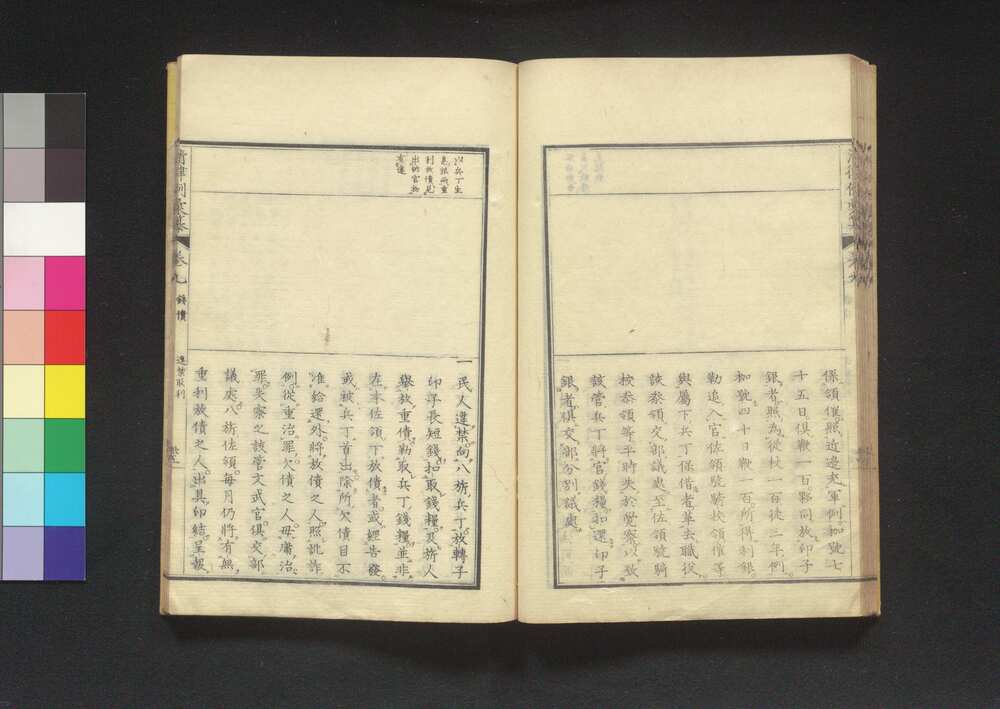 係領催照近邊充軍例枷號七
十五日俱鞭一百夥同放印子
銀者照為從杖一百徒三年例
枷號四十日鞭一百所得利銀
勒追入官佐領驍騎校領催等
與屬下兵丁保借者革去職役
該叅領交部議處至佐領驍騎
校叅領等平時失於覺察以致
該管兵丁將官錢糧扣還印子
銀者俱交部分別議處
一民人違禁向八旂兵丁放轉子
印子長短錢扣取錢糧及旂人
舉放重債勒取兵丁錢糧並非
在本佐領下放債者或經告發
或被兵丁首出除所欠債目不
准給還外將放債之人照訛詐
例從重治罪欠債之人毋庸治
罪失察之該管文武官俱交部
議處八旂佐領每月仍將有無
重利放債之人出具印結呈報
兵丁生
息銀兩重
利放債見
出納官物
有違
清律例彙纂
卷九
錢債
違禁取利